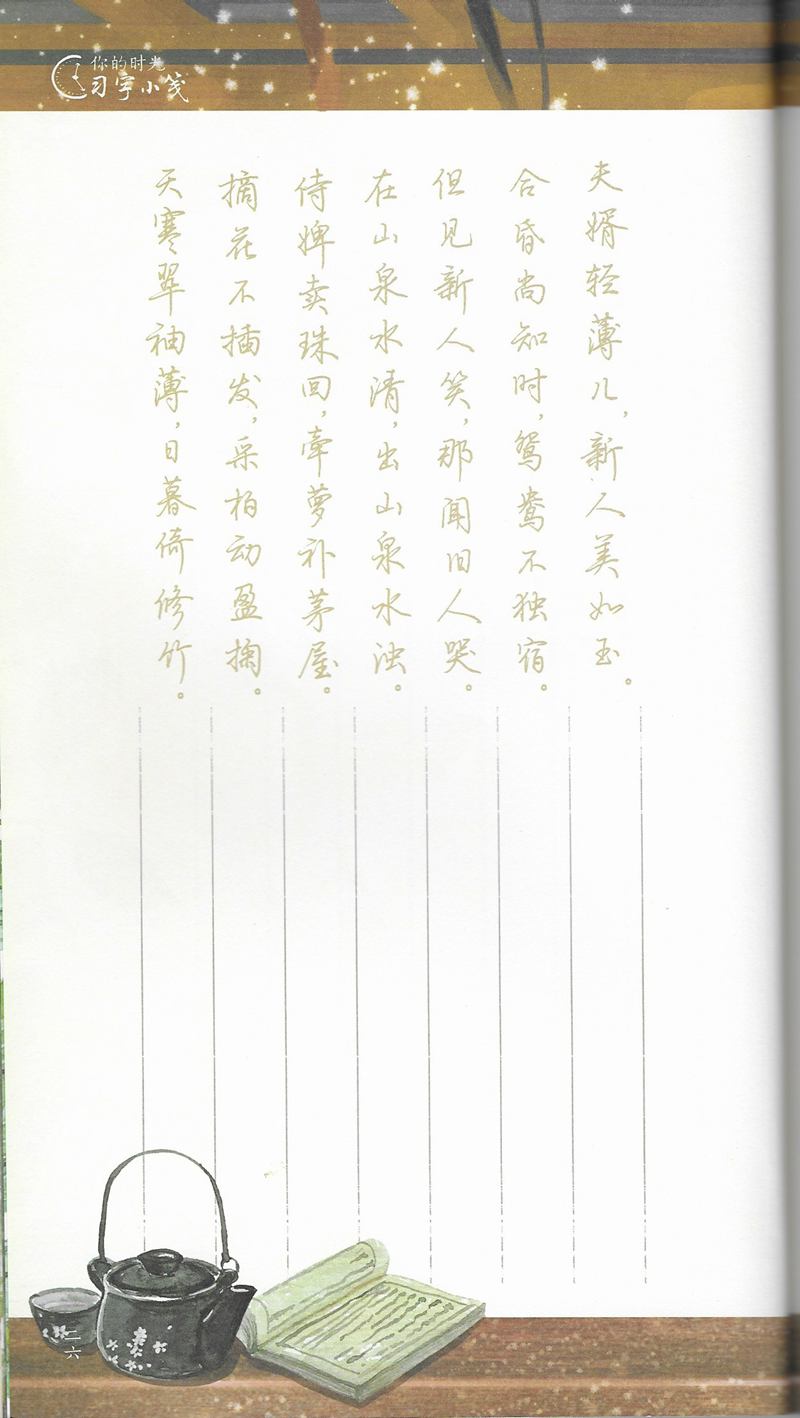 你的时光
习字小笺
夫婿轻薄儿，新人美如玉。
合昏尚知时，鸳鸯不独宿。
但见新人笑，那闻旧人哭。
在山泉水清，出山泉水浊。
侍婢卖珠回，牵萝补茅屋。
摘花不插发，采柏动盈掬。
天寒翠袖薄，日暮倚修竹。
二六